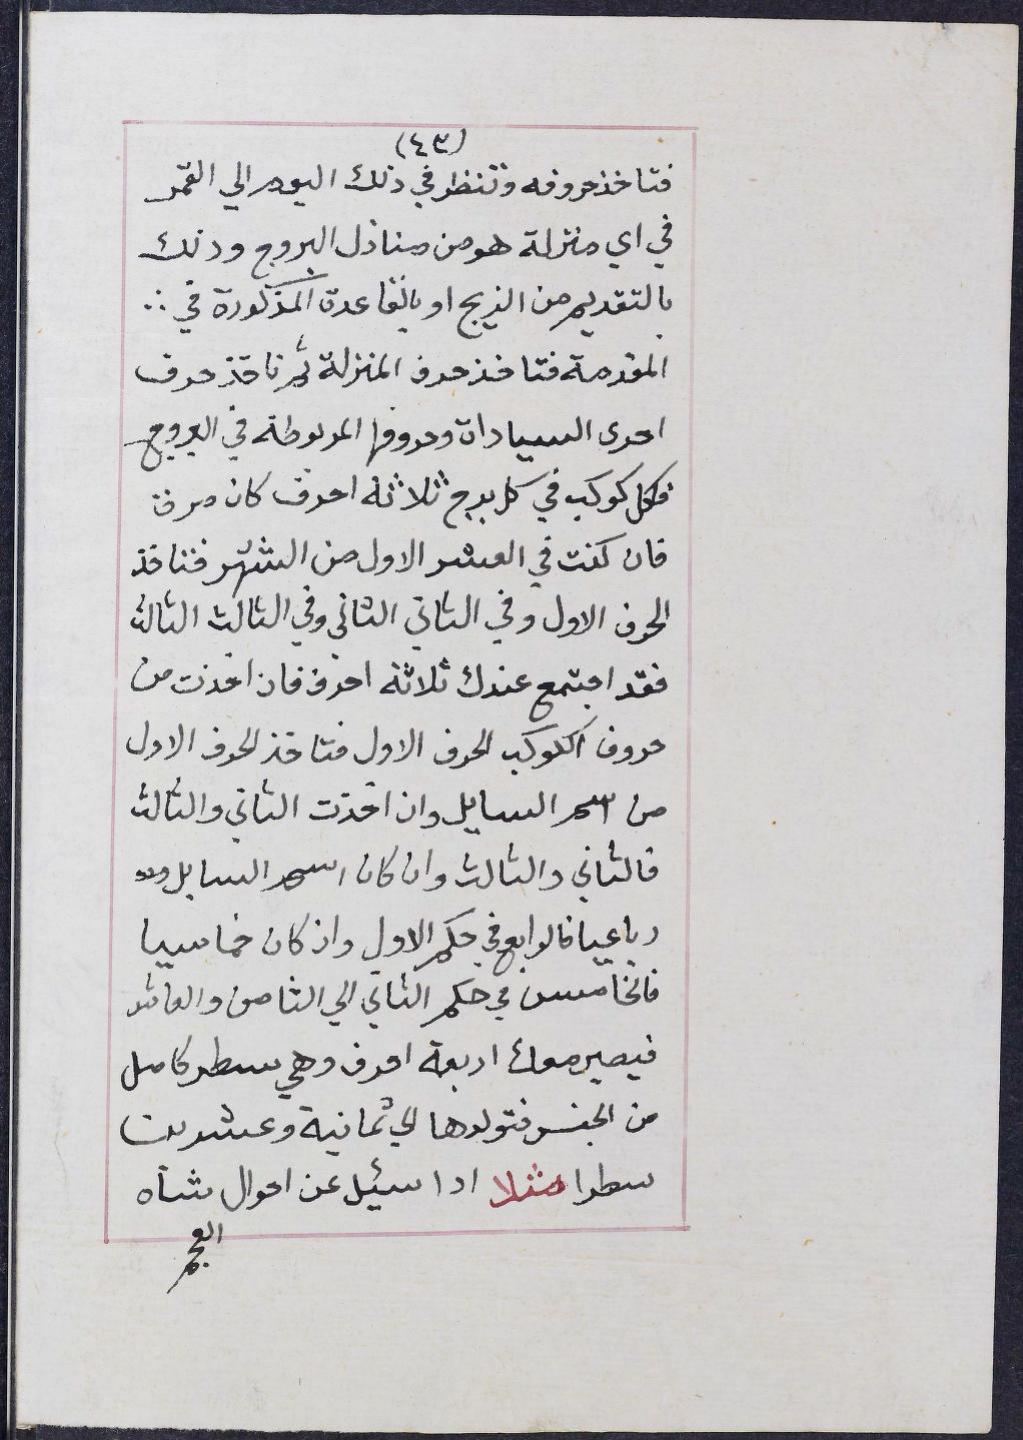 (٤٣)
فتاخذ حروفه وتنظر في ذلك اليوم الي القمر
في اي منزلة هو من منازل البروج وذلك
بالتقديم من الزيج او بالقاعدة المذكورة في ∴
المقدمة فتاخذ حرف المنزلة ثم تاخذ حرف
احدى السيارات وحروفها المربوطة في البروج
فكل كوكب في كل برج ثلاثة احرف كان
فان كنت في العشر الاول من الشهر فتاخذ
الحرف الاول وفي الثاني الثاني وفي الثالث الثالث
فقد اجتمع عندك ثلاثة احرف فان اخذت من
حروف الكوكب الحرف الاول فتاخذ الحرف الاول
من اسم السايل وان اخذت الثاني والثالث
فالثاني والثالث وان كان اسم السايل
رباعيا فالرابع في حكم الاول وان كان خماسيا
فالخامس في حكم الثاني الي الثامن والعاشر
فيصير معك اربعة احرف وهي سطر كامل
من الجفر فتولدها الي ثمانية وعشرين
سطرا مثلا اذا سئيل عن احوال شاه
العجم